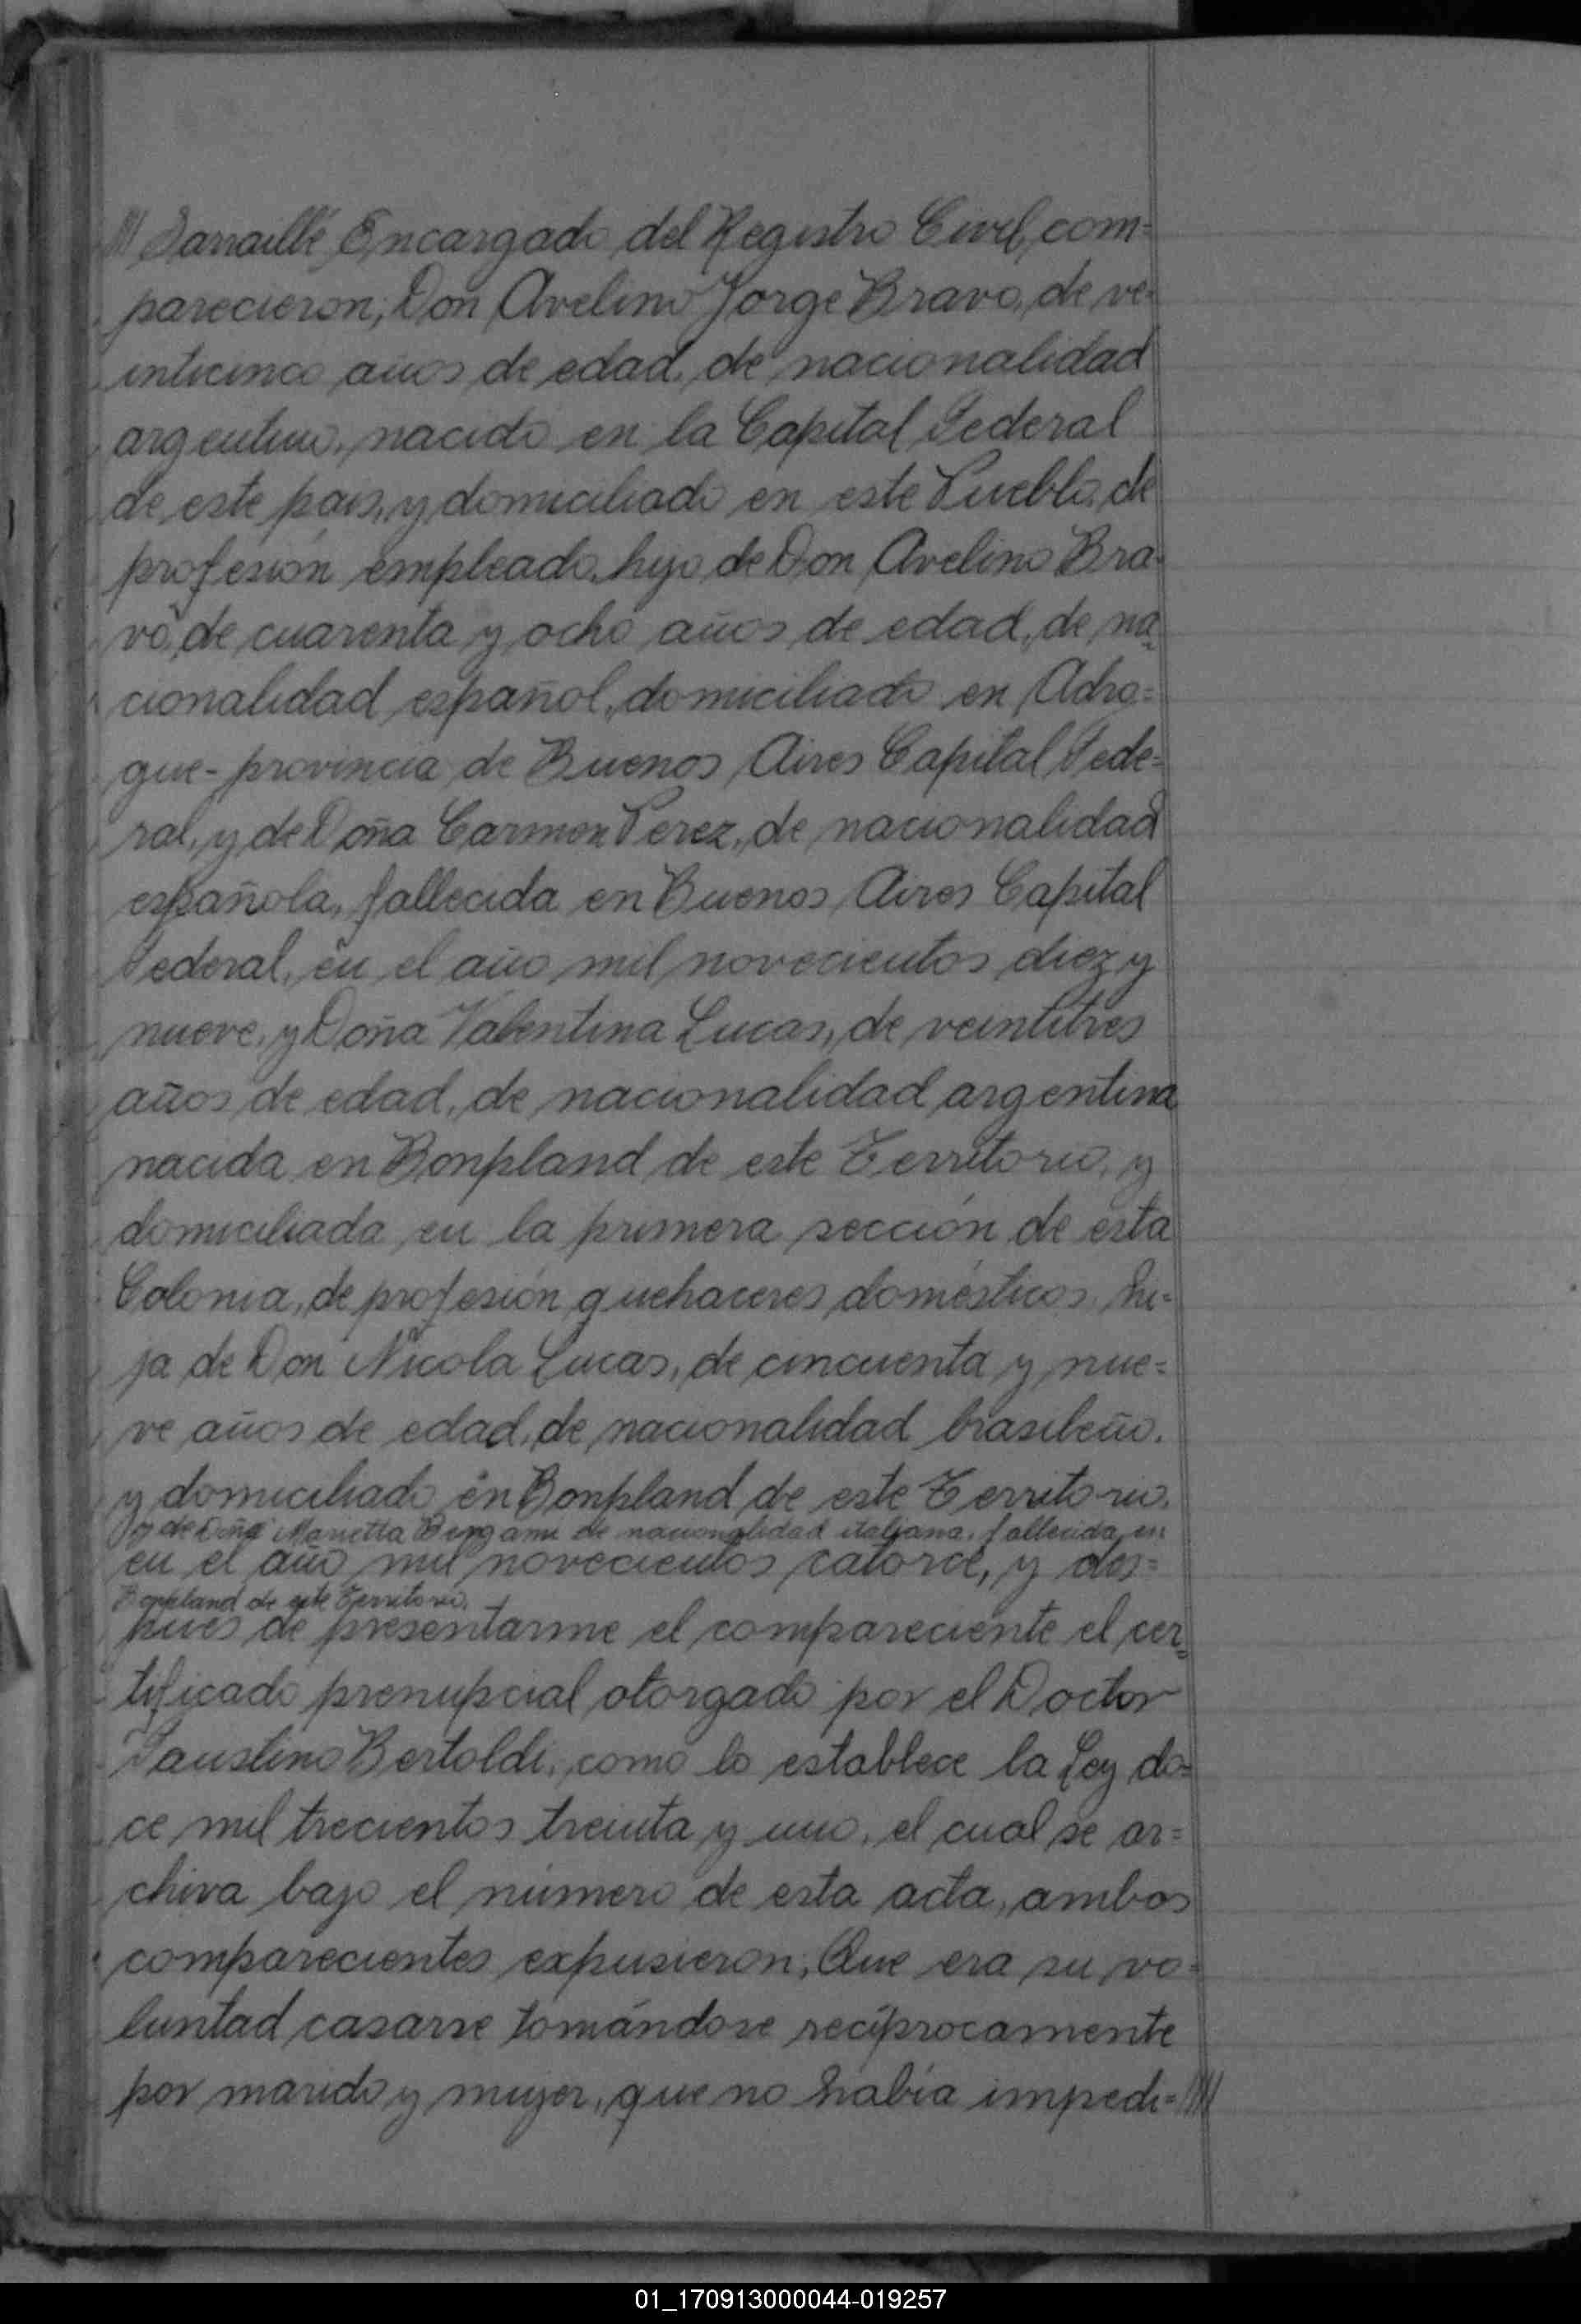 //// Darraillé Encargado del Registro Civil, com=
parecieron; Don Avelino Jorge Bravo, de ve-
inticinco años de edad, de nacionalidad
argentino, nacido en la Capital Federal
de este pais, y domiciliado en este Pueblo, de
profesión empleado, hijo de Don Avelino Bra-
vo, de cuarenta y ocho años de edad, de na=
cionalidad español, domiciliado en Adro=
gue- provincia de Buenos Aires Capital Fede=
ral, y de Doña Carmen Perez, de nacionalidad
española, fallecida en Buenos Aires Capital
Federal, en el año mil novecientos diez y
nueve, y Doña Valentina Lucas, de veintitres
años de edad, de nacionalidad argentina
nacida en Bonpland de este Territorio, y
domiciliada en la primera sección de esta
Colonia, de profesión quehaceres domésticos, hi=
ja de Don Nicola Lucas, de cincuenta y nue=
ve años de edad, de nacionalidad brasileño.
y domiciliado en Bonpland de este Territorio.
y de Doña Marietta Bergami de nacionalidad italiana, fallecida en
en el año mil novecientos catorce, y des=
Bonpland de este Territorio,
pues de presentarme el compareciente el cer=
tificado prenupcial otorgado por el Doctor
Faustino Bertoldi, como lo establece la Ley do=
ce mil trecientos treinta y uno, el cual se ar=
chiva bajo el número de esta acta, ambos
comparecientes expusieron; Que era su vo=
luntad casarse tomándose recíprocamente
por marido y mujer, que no había impedi=////
01_170913000044-019257